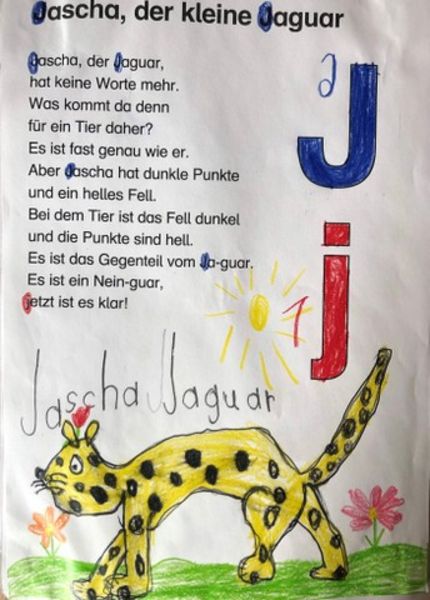 Jascha, der kleine Jaguar
Jascha, der Jaguar,
hat keine Worte mehr.
Was kommt da denn
für ein Tier daher?
Es ist fast genau wie er.
Aber Jascha hat dunkle Punkte
und ein helles Fell.
Bei dem Tier ist das Fell dunkel
und die Punkte sind hell.
Es ist das Gegenteil vom Ja-guar.
Es ist ein Nein-guar,
jetzt ist es klar!
J
j
Jascha Jaguar